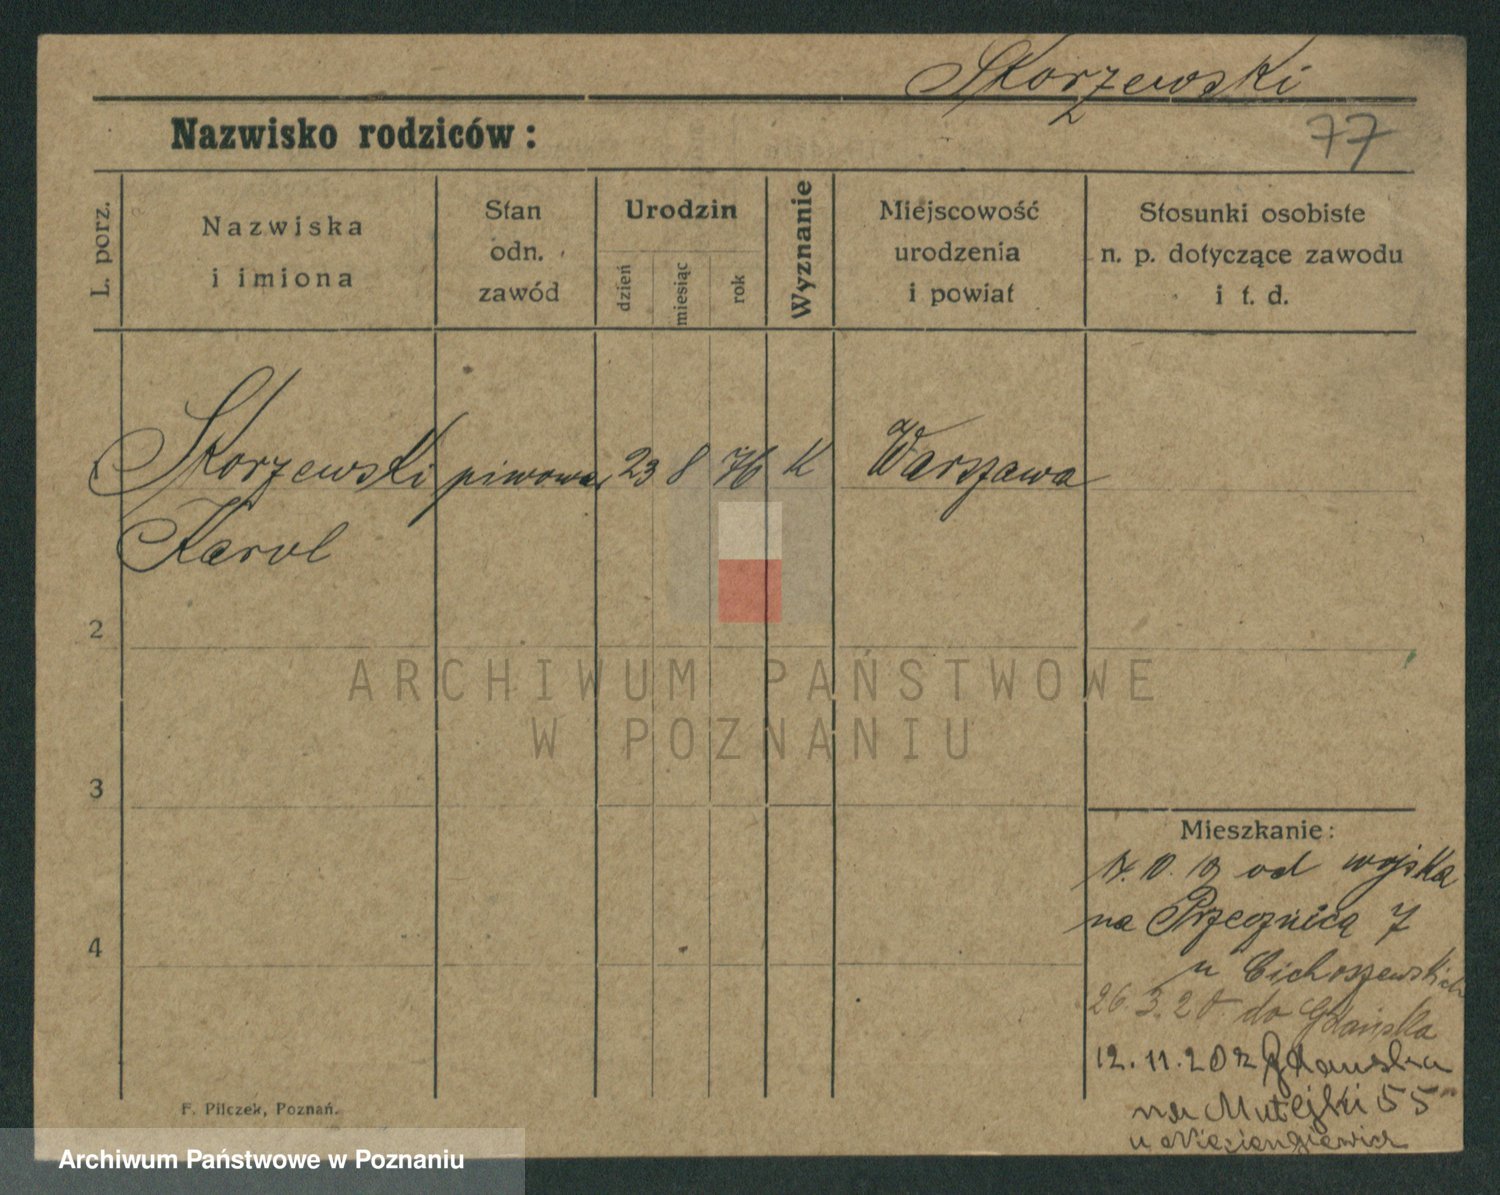 Skorzewski
Nazwisko rodziców:
77
L. porz.
Nazwiska
i imiona
Stan
odn.
zawód
Urodzin
dzień
miesiąc
rok
Wyznanie
Miejscowość
urodzenia
i powiat
Stosunki osobiste
n. p. dotyczące zawodu
i t. d.
Skorzewski piwowar 23 8 76 K Warszawa
Karol
2
3
4
ARCHIWUM PAŃSTWOWE
W POZNANIU
Mieszkanie:
10. 19 od wojska
na Przecznicą 7
u Cichoszewskich
26.3.20 do Gdańska
12.11.20 z Gdanska
na Matejki 55
u
F. Pilczek, Poznań.
Archiwum Państwowe w Poznaniu